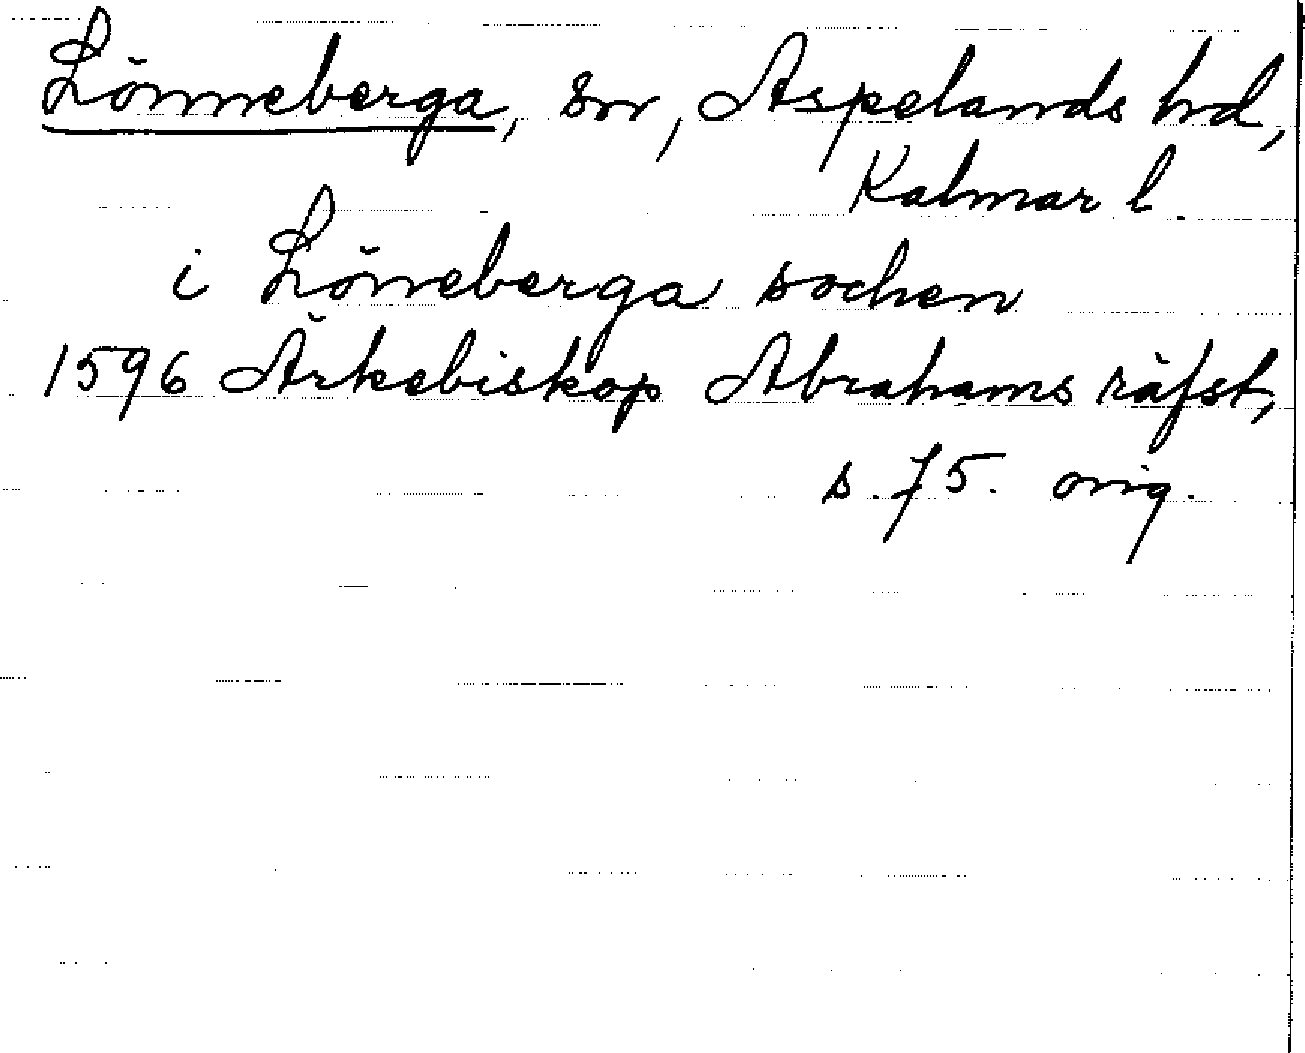 Lönneberga, sn, Aspelands hd,
Kalmar l.
i Lönneberga sochen
1596 Ärkebiskop Abrahams räfst,
s. 75. orig.